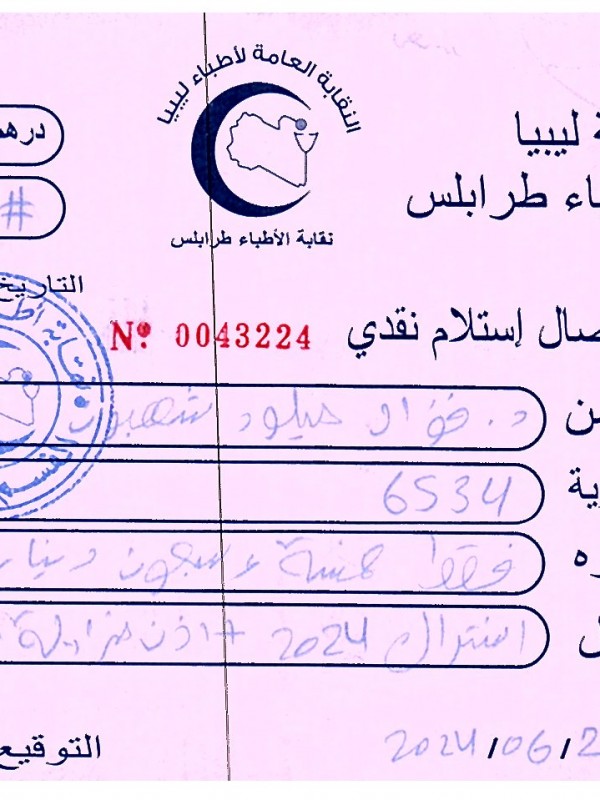 النقابة العامة لأطباء ليبيا
ليبيا
طرابلس
نقابة الأطباء طرابلس
درهم
#
التاريخ
إستلام نقدي
Nº 0043224
د. فؤاد ميلود شهبوب
6534
فقط خمسة وسبعون دينار
اشتراك 2024 + اذن مزاولة
2024/06/2
التوقيع